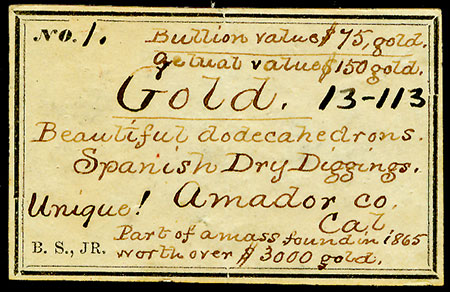 No. 1. Bullion value $75, gold.
Actual value $150 gold.
Gold. 13-113
Beautiful dodecahedrons.
Spanish Dry Diggings.
Unique! Amador co.
Cal.
B. S., JR. Part of a mass found in 1865
worth over $3000 gold.